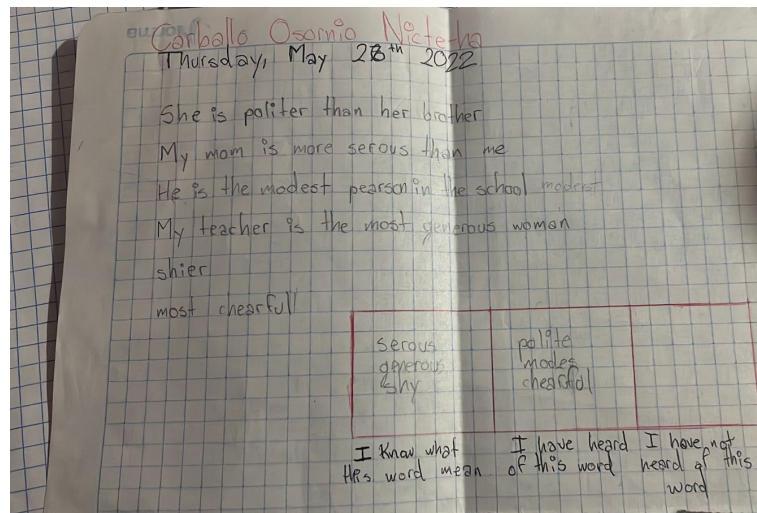 Carballo Osornio Nicte-ha
Thursday, May 26th 2022
She is politer than her brother
My mom is more serous than me
He is the modest pearson in the school modest
My teacher is the most generous woman
shier
most chearfull
serous
generous
shy
polite
modes
chearful
I know what
this word mean
I have heard
of this word
I have not
heard of this
word